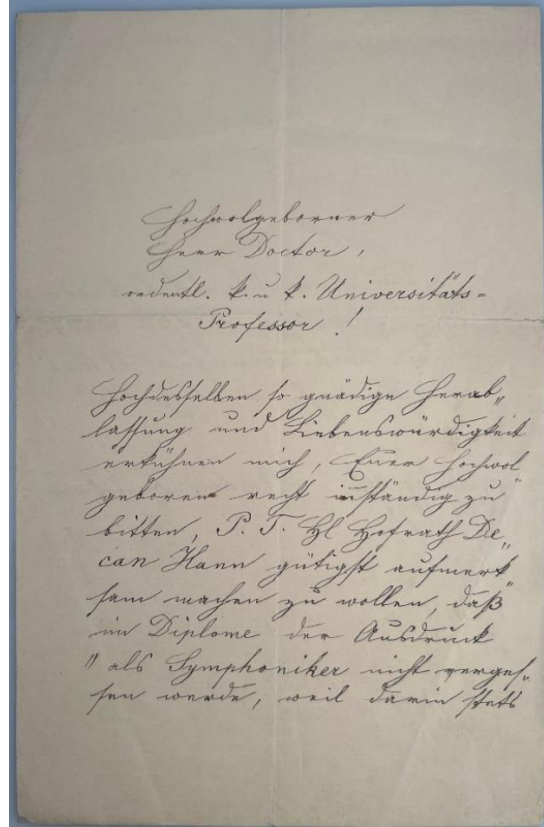 Hochwolgeborner
Herr Doctor,
ordentl. k. u. k. Universitäts-
Professor!
Hochdesselben so gnädige Herab„
lassung und Liebenswürdigkeit
erkühnen mich, Euer Hochwol„
geboren recht inständig zu
bitten, P. T. Hl Hofrath De„
can Hann gütigst aufmerk„
sam machen zu wollen, daß
im Diplome der Ausdruck
"als Symphoniker nicht verges„
sen werde, weil darin stets